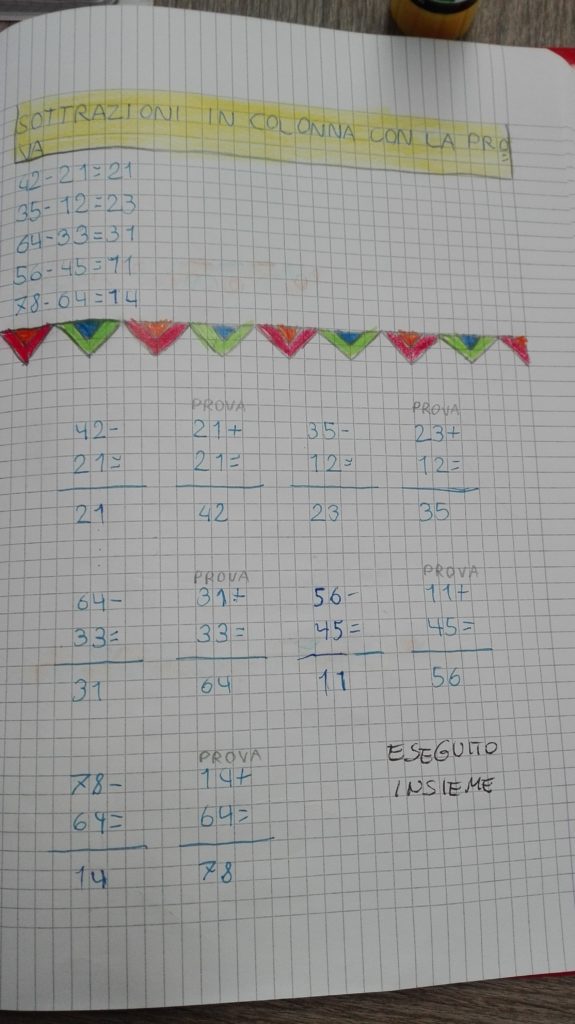 SOTTRAZIONI IN COLONNA CON LA PRO
VA
42-21=21
35-12=23
64-33=31
56-45=11
78-64=14
PROVA PROVA
42- 21+ 35- 23+
21= 21= 12= 12=
21 42 23 35
PROVA PROVA
64- 31+ 56- 11+
33= 33= 45= 45=
31 64 11 56
PROVA ESEGUITO
78- 14+ INSIEME
64= 64=
14 78